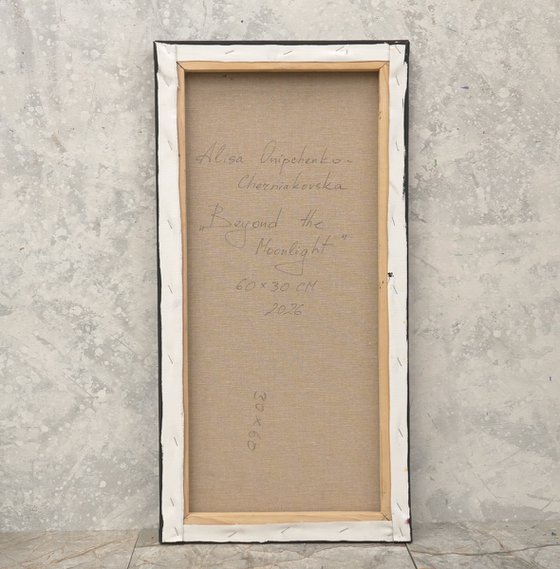 Alisa Onipchenko-
Cherniakovska
„Beyond the
Moonlight"
60×30 CM
2026
30×60